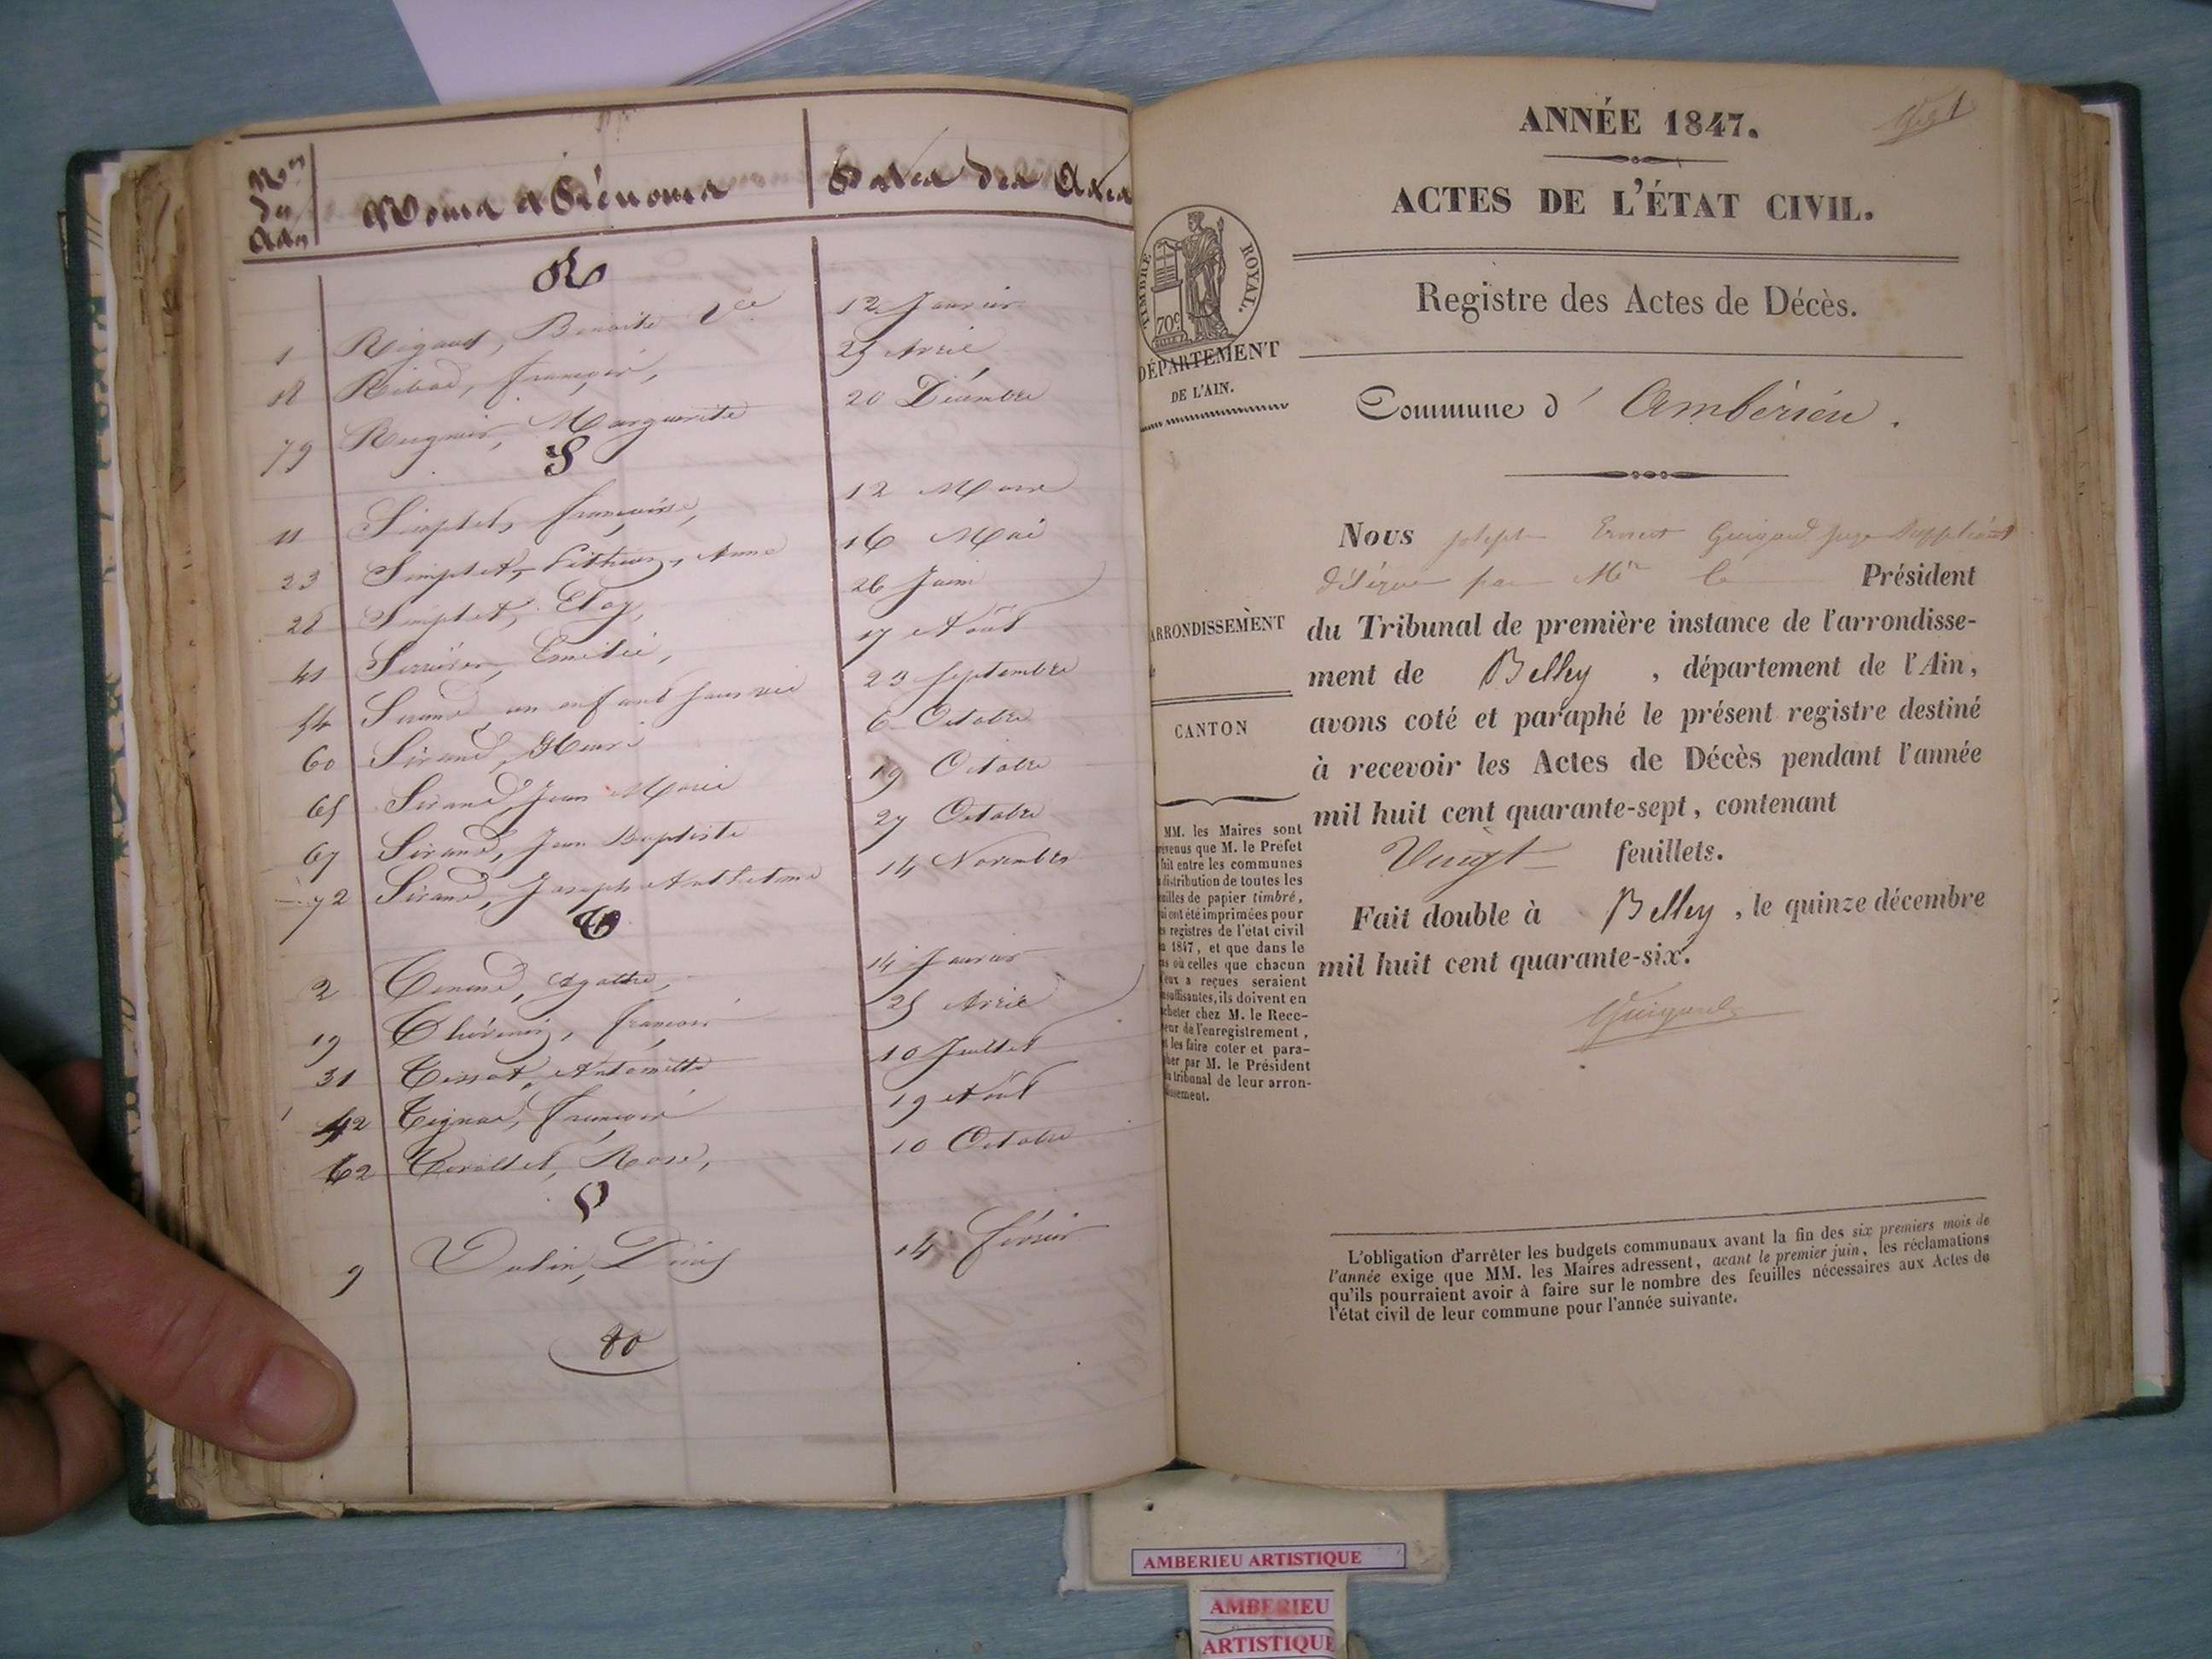 Nos des Actes
Noms et Prénoms
Dates des Actes
R
1 Rigaud, Benoite Vce 12 Janvier
18 Ribod, françois, 23 Avril
79 Marguerite 20 Décembre
S
11 Simplet, françoise, 12 Mars
23 Simplet, Anne 16 Mai
28 Simplet, Eloy, 26 Juin
41 Emelie, 17 Août
54 Sirand, un enfant sans vie 23 septembre
60 Sirand, Henri 6 Octobre
65 Sirand, Jean Marie 19 Octobre
67 Sirand, Jean Baptiste 27 Octobre
72 Sirand, Joseph Anthelme 14 Novembre
T
2 Tenand, Agathe, 14 Janvier
19 Thévenin, françois 25 Avril
31 Tissot, Antoinette 10 Juillet
42 françois 19 Août
62 Rose, 10 Octobre
V
9 14 février
80
ANNÉE 1847.
ACTES DE L'ÉTAT CIVIL.
TIMBRE ROYAL.
70c
Registre des Actes de Décès.
DÉPARTEMENT
DE L'AIN.
Commune d' Ambérieu.
Nous Joseph Ernest Guigard juge Suppléant
délégué par Mr le Président
ARRONDISSEMENT
du Tribunal de première instance de l'arrondisse-
ment de Belley, département de l'Ain,
CANTON
avons coté et paraphé le présent registre destiné
à recevoir les Actes de Décès pendant l'année
mil huit cent quarante-sept, contenant
Vingt feuillets.
Fait double à Belley, le quinze décembre
mil huit cent quarante-six.
MM. les Maires sont
que M. le Préfet
fait entre les communes
distribution de toutes les
de papier timbré,
ont été imprimées pour
registres de l'état civil
1847, et que dans le
où celles que chacun
a reçues seraient
ils doivent en
chez M. le Rece-
de l'enregistrement,
les faire coter et para-
par M. le Président
tribunal de leur arron-
L'obligation d'arrêter les budgets communaux avant la fin des six premiers mois de
l'année exige que MM. les Maires adressent, avant le premier juin, les réclamations
qu'ils pourraient avoir à faire sur le nombre des feuilles nécessaires aux Actes de
l'état civil de leur commune pour l'année suivante.
AMBERIEU ARTISTIQUE
AMBERIEU
ARTISTIQUE